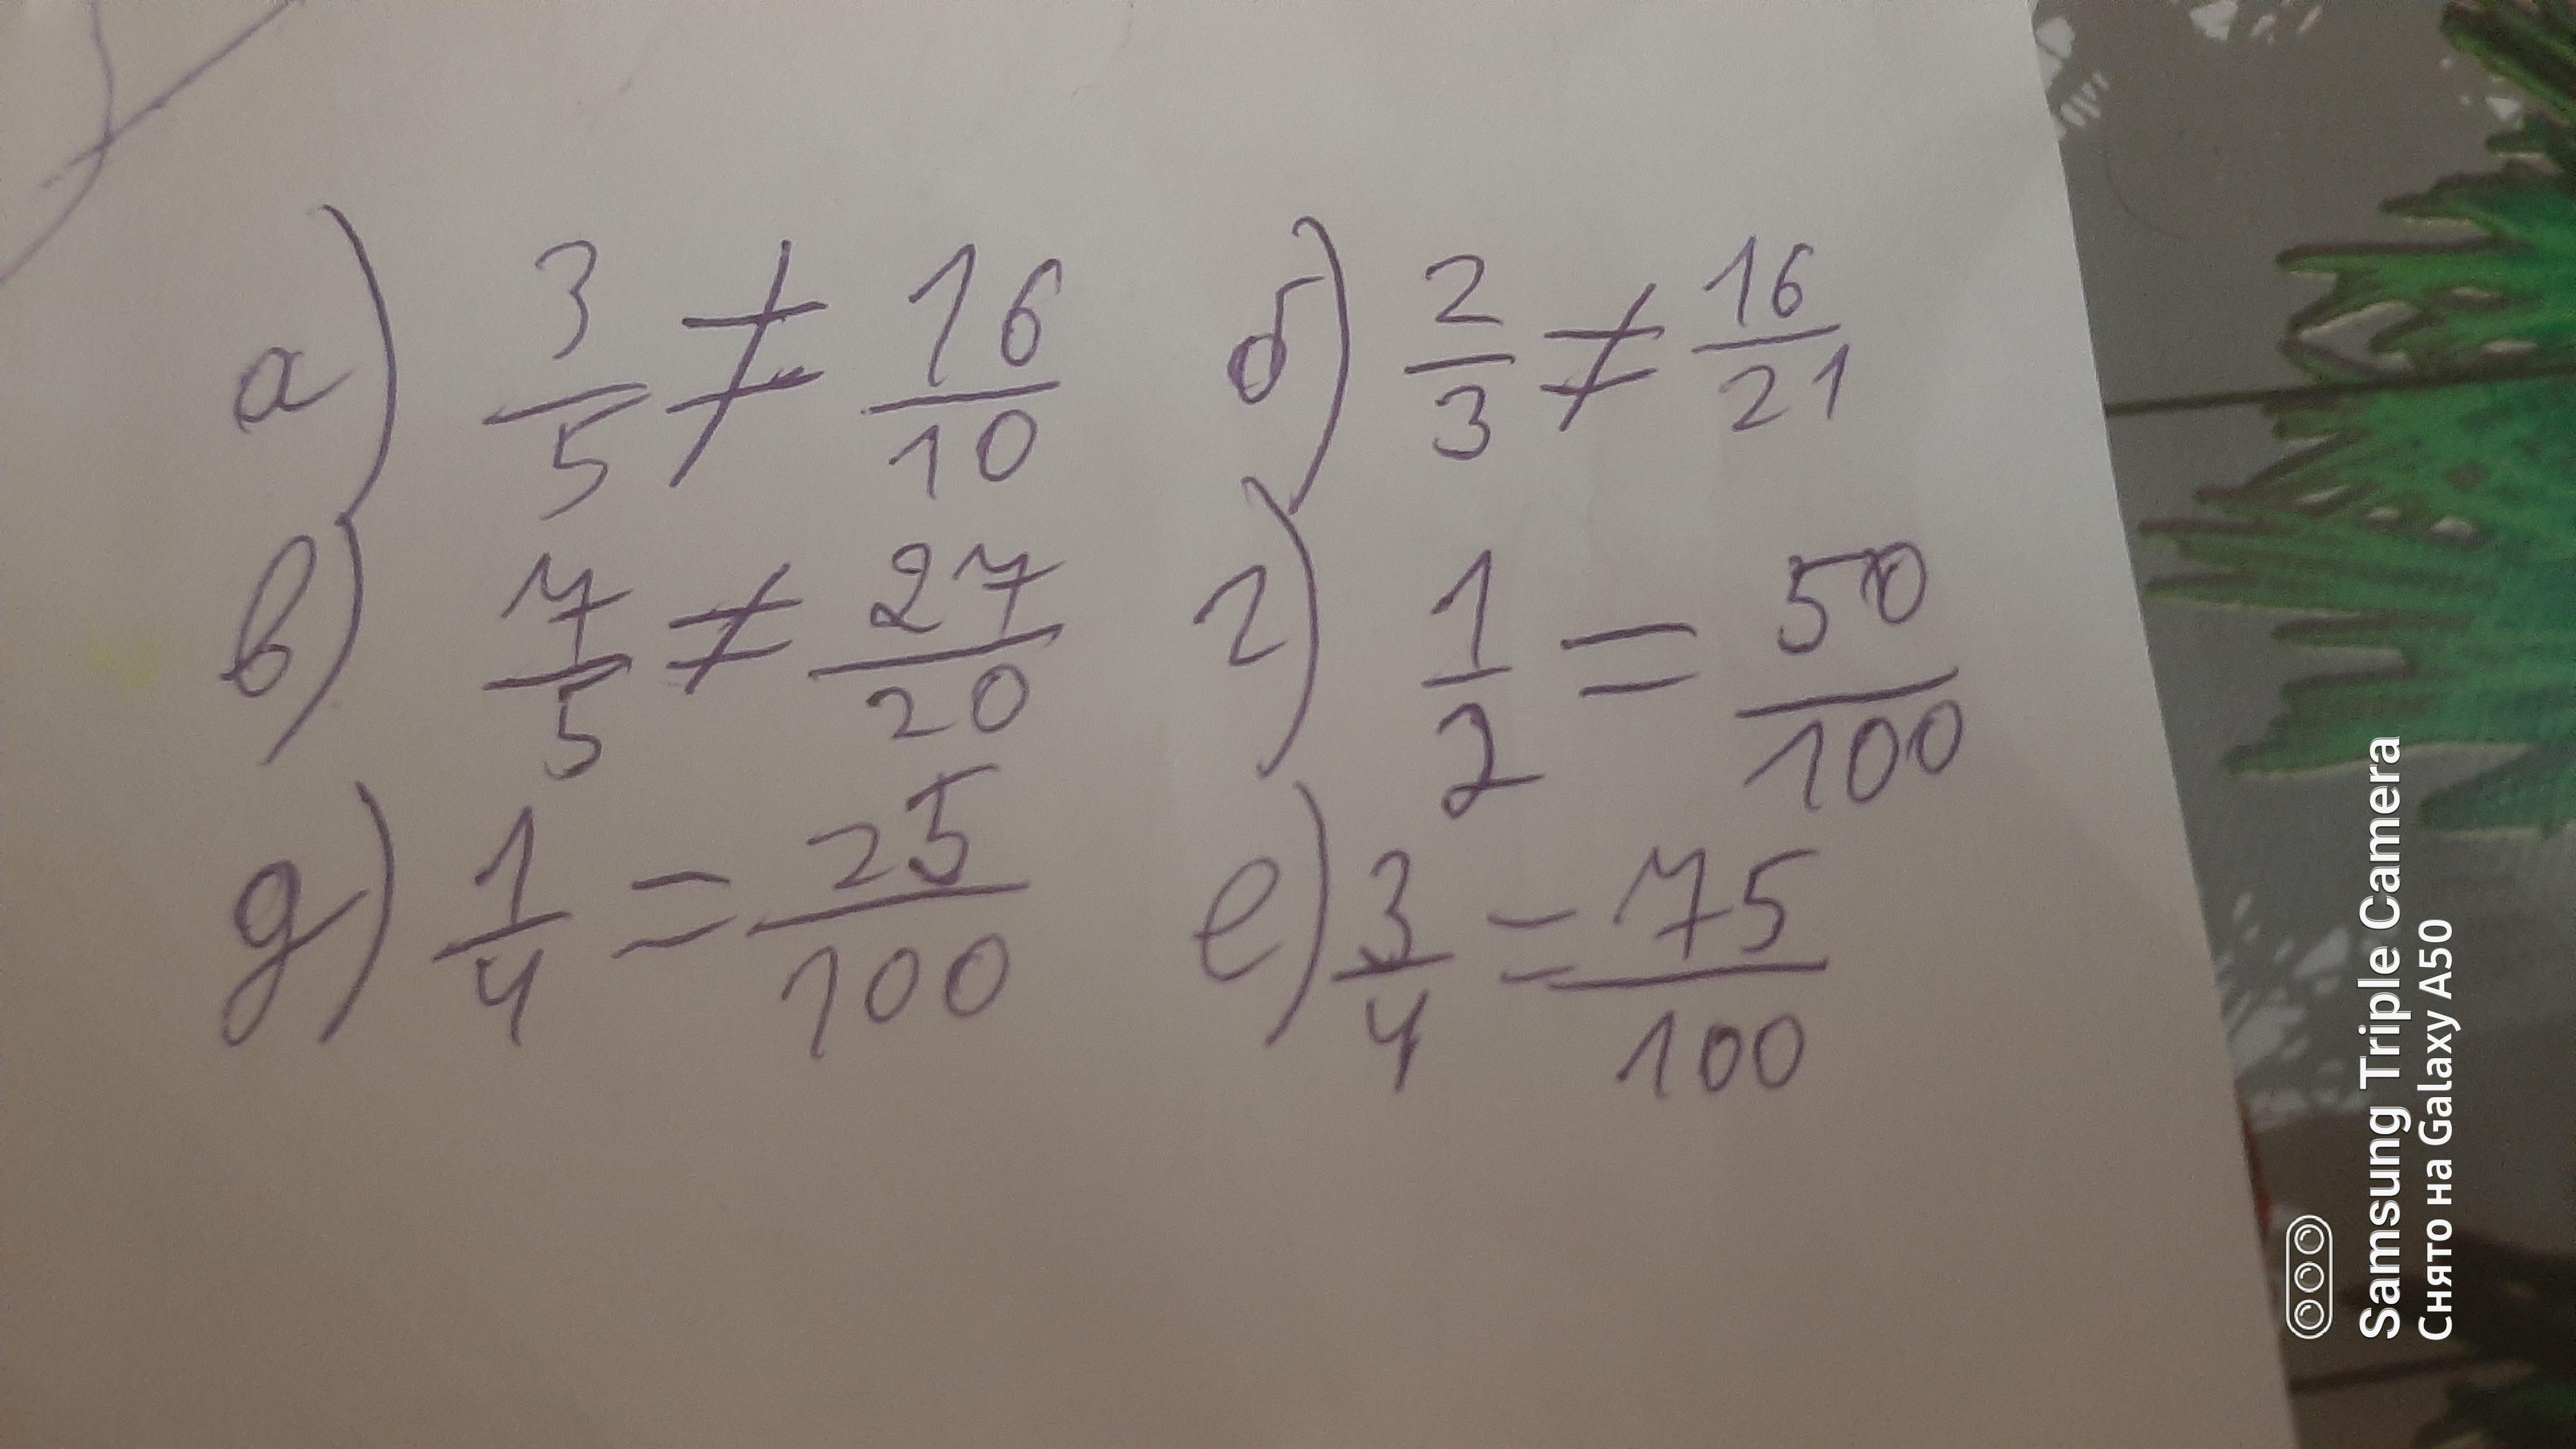 а) 3/5 ≠ 16/10 б) 2/3 ≠ 16/21
в) 7/5 ≠ 27/20 г) 1/2 = 50/100
д) 1/4 = 25/100 е) 3/4 = 75/100
Samsung Triple Camera
Снято на Galaxy A50